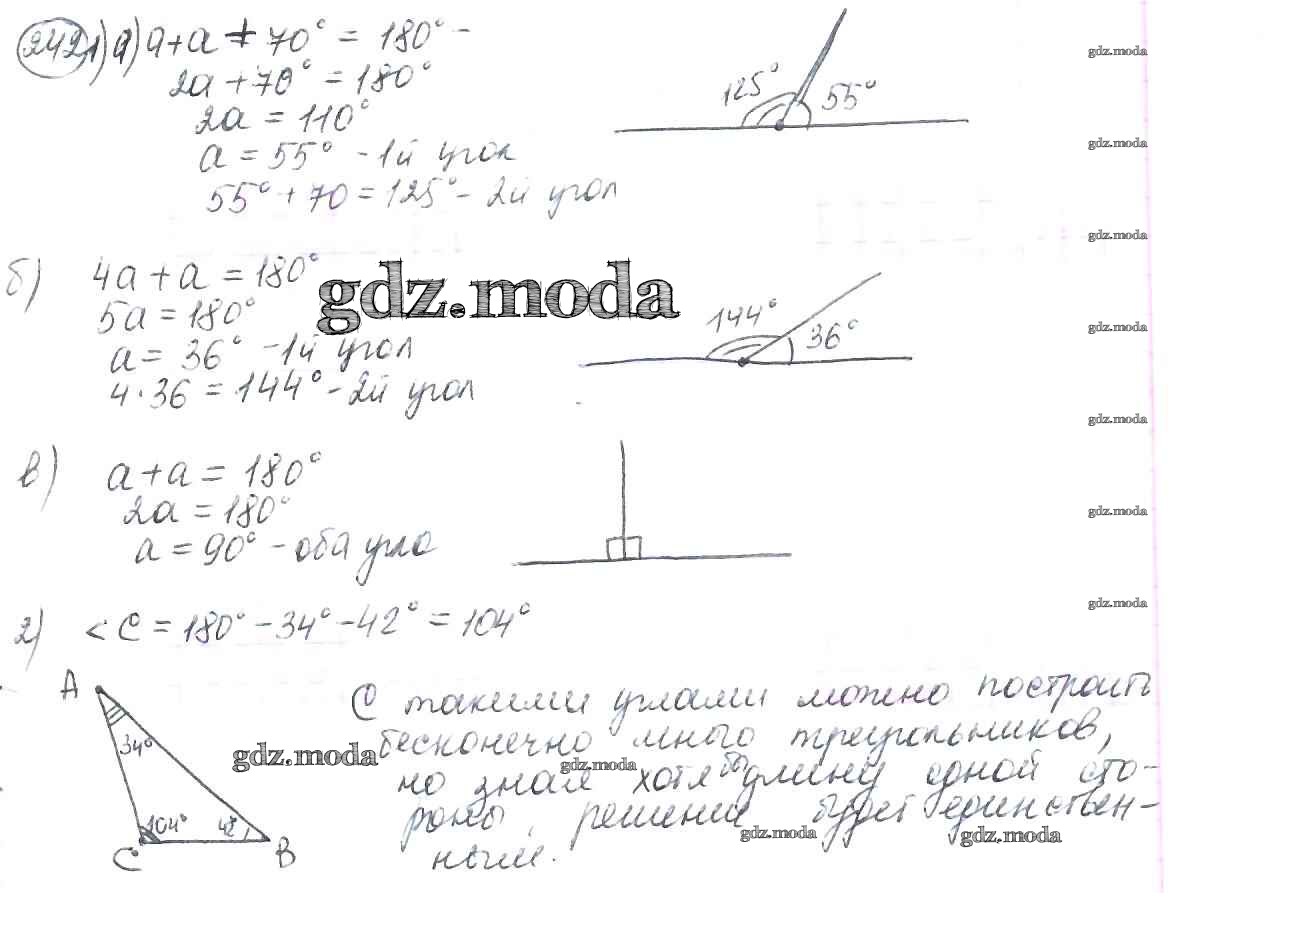 242 1) а) а+а+70° = 180°
2а+70° = 180°
2а = 110°
а = 55° - 1й угол
55° + 70 = 125° - 2й угол
125° 55°
б) 4а + а = 180°
5а = 180°
а = 36° - 1й угол
4·36 = 144° - 2й угол
144° 36°
в) а+а = 180°
2а = 180°
а = 90° - оба угла
2) <С = 180° - 34° - 42° = 104°
А
34°
104° 42°
С В
С такими углами можно построить
бесконечно много треугольников,
но зная хотя бы длину одной сто-
роны, решение будет единствен-
ным.
gdz.moda
gdz.moda
gdz.moda
gdz.moda
gdz.moda
gdz.moda
gdz.moda
gdz.moda
gdz.moda
gdz.moda
gdz.moda
gdz.moda